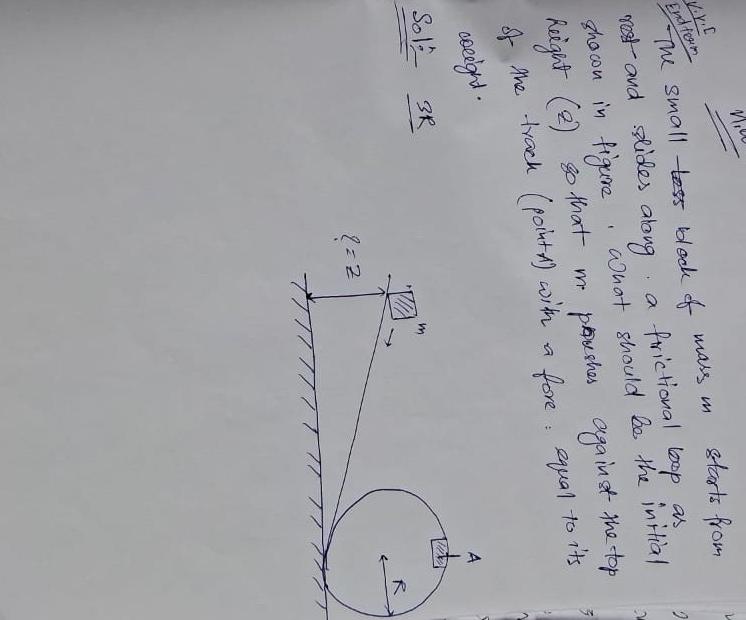 V.V.I
Endterm
The small block of mass m starts from
rest and slides along . a frictional loop as
shown in figure . what should be the initial
height (Z) so that m pushes against the top
of the track (point A) with a force : equal to its
weight.
Solⁿ:- 3R
m
? = Z
A
R